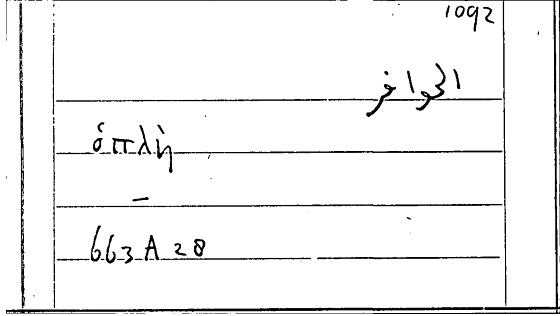 1092
الحوافر
ὁπλὴ
–
663 A 28